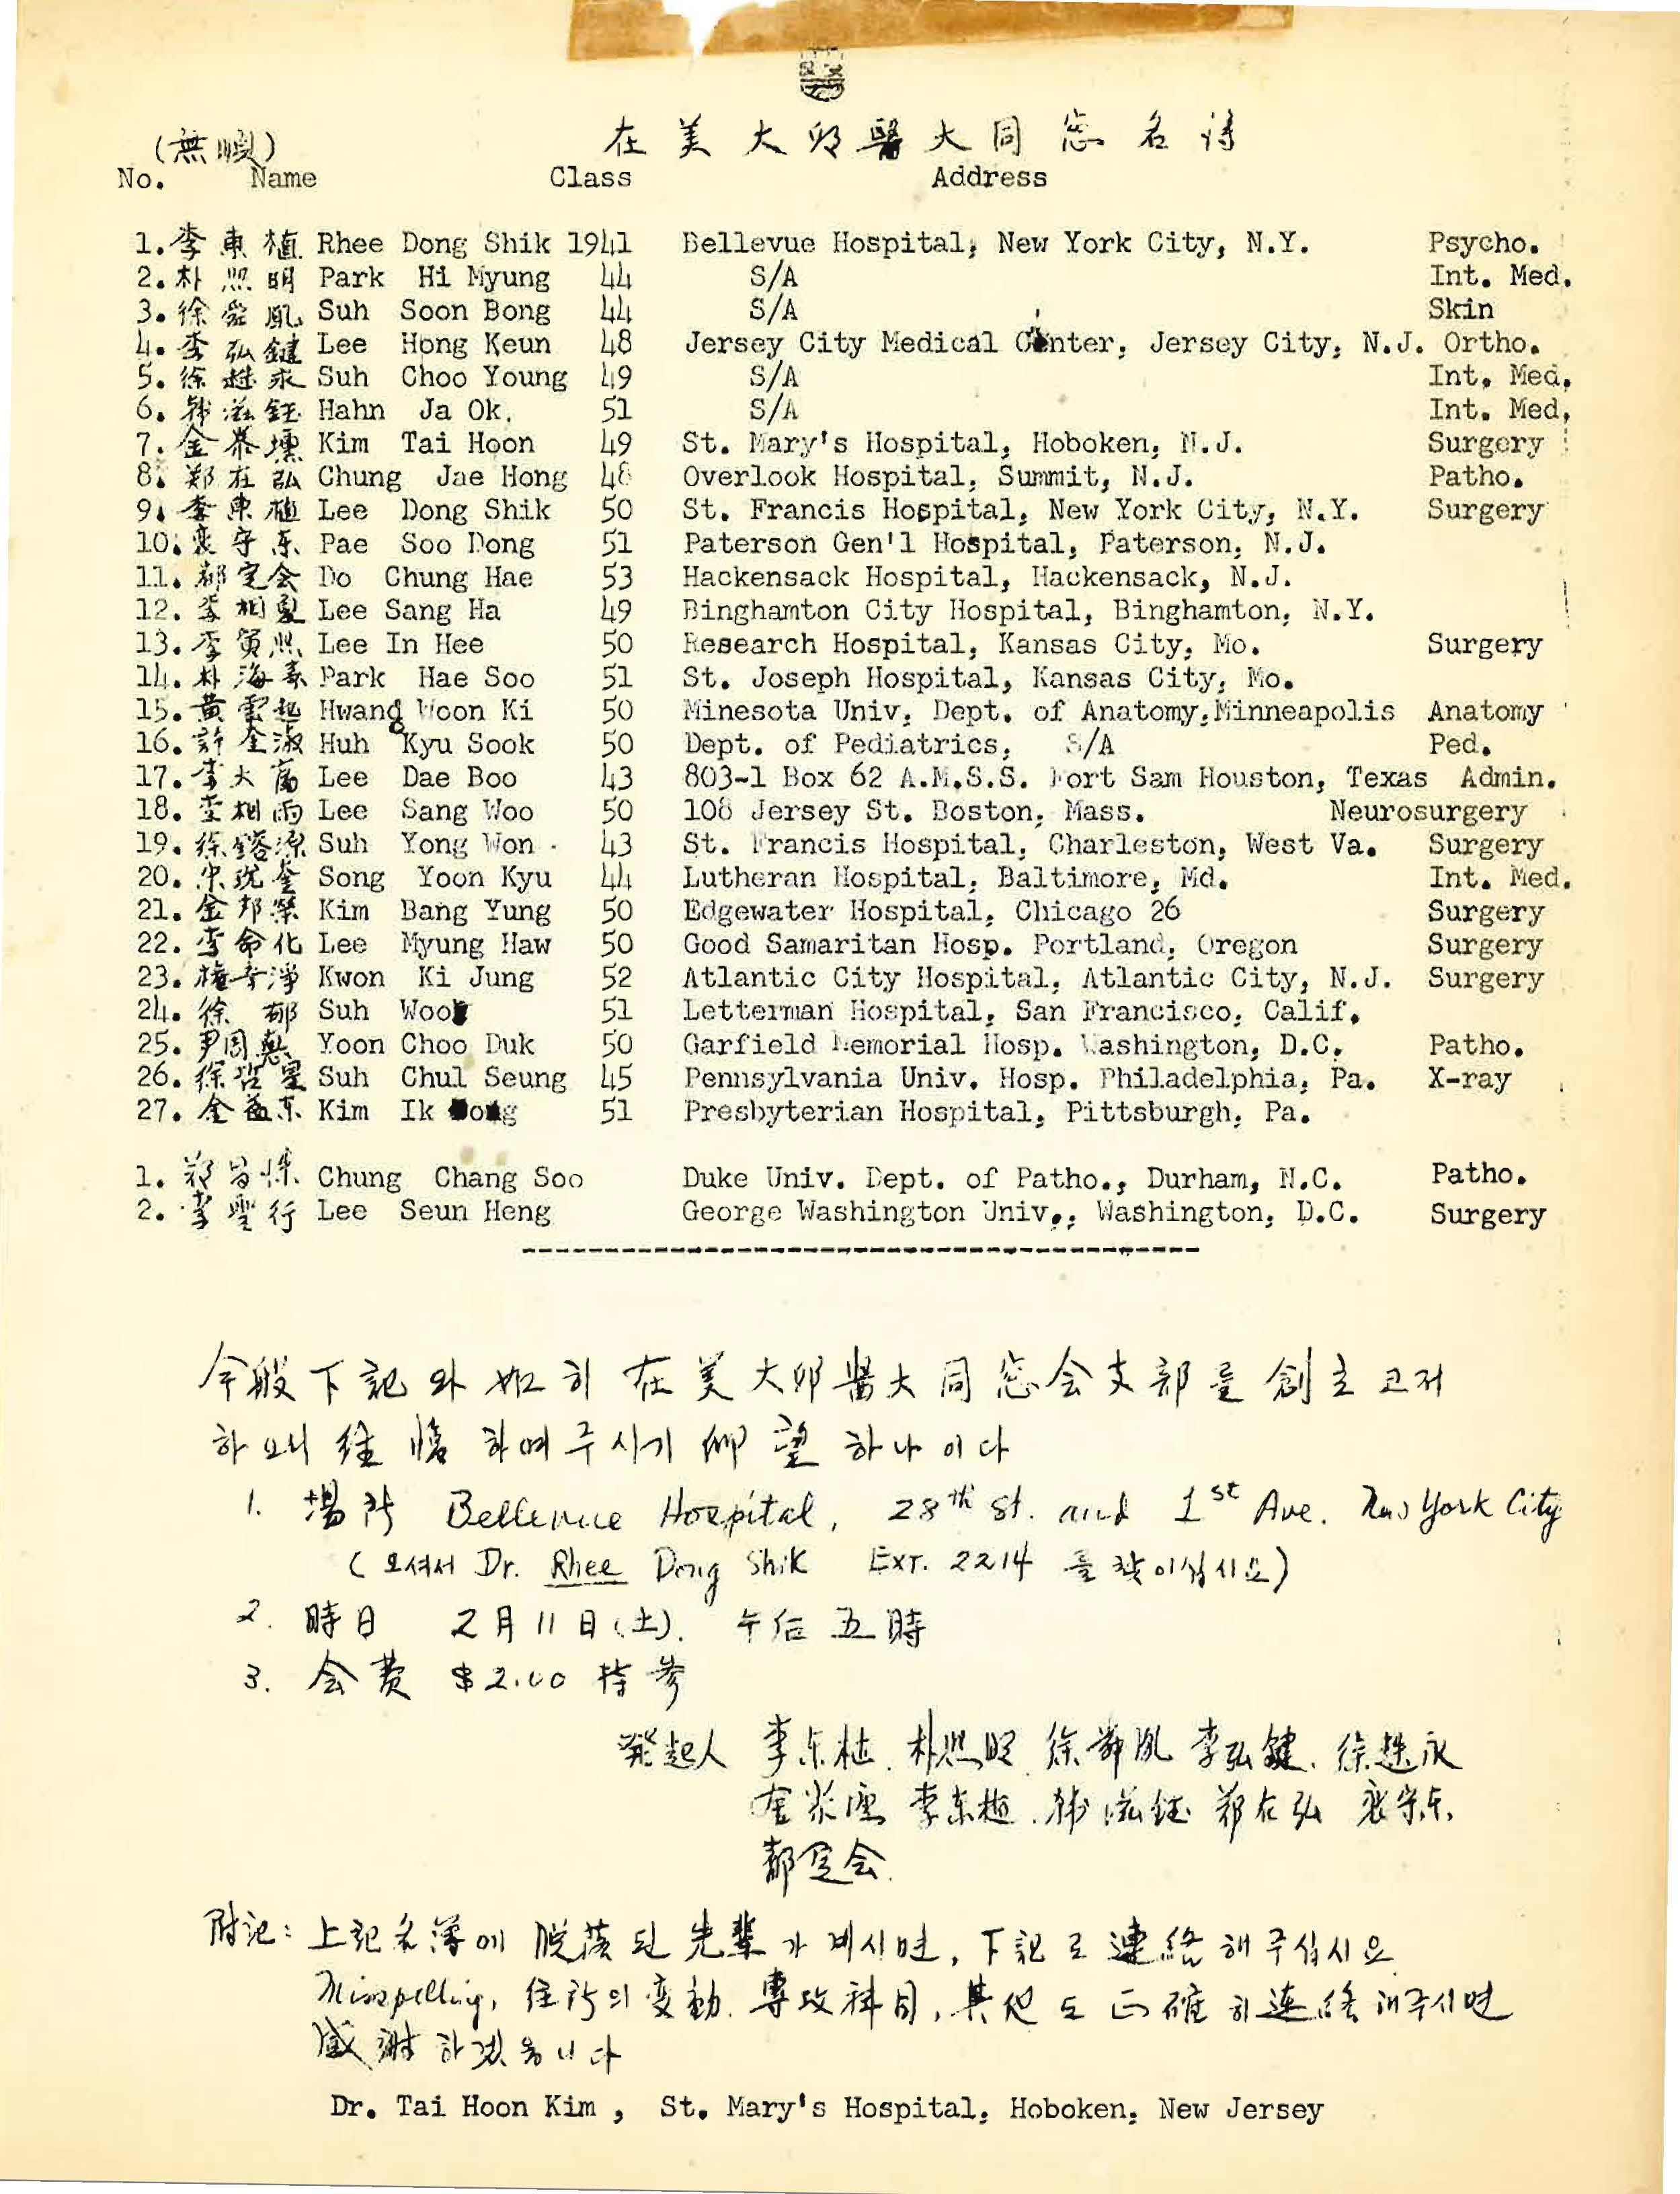 在美大邱醫大同窓名簿
(無順)
No. Name Class Address
1. 李東植 Rhee Dong Shik 1941 Bellevue Hospital, New York City, N.Y. Psycho.
2. 朴熙明 Park Hi Myung 44 S/A Int. Med.
3. 徐舜鳳 Suh Soon Bong 44 S/A Skin
4. 李弘鍵 Lee Hong Keun 48 Jersey City Medical Center, Jersey City, N.J. Ortho.
5. 徐 Suh Choo Young 49 S/A Int. Med.
6. 韓滋鈺 Hahn Ja Ok. 51 S/A Int. Med.
7. 金泰壎 Kim Tai Hoon 49 St. Mary's Hospital, Hoboken, N.J. Surgery
8. 鄭在弘 Chung Jae Hong 48 Overlook Hospital, Summit, N.J. Patho.
9. 李東植 Lee Dong Shik 50 St. Francis Hospital, New York City, N.Y. Surgery
10. 裵守东 Pae Soo Dong 51 Paterson Gen'l Hospital, Paterson, N.J.
11. 都定会 Do Chung Hae 53 Hackensack Hospital, Hackensack, N.J.
12. 李相夏 Lee Sang Ha 49 Binghamton City Hospital, Binghamton, N.Y.
13. 李寅熙 Lee In Hee 50 Research Hospital, Kansas City, Mo. Surgery
14. 朴海 Park Hae Soo 51 St. Joseph Hospital, Kansas City, Mo.
15. 黃雲起 Hwang Woon Ki 50 Minesota Univ. Dept. of Anatomy, Minneapolis Anatomy
16. 許奎淑 Huh Kyu Sook 50 Dept. of Pediatrics, S/A Ped.
17. 李大富 Lee Dae Boo 43 803-1 Box 62 A.M.S.S. Fort Sam Houston, Texas Admin.
18. 李相雨 Lee Sang Woo 50 108 Jersey St. Boston, Mass. Neurosurgery
19. 徐鎔源 Suh Yong Won 43 St. Francis Hospital, Charleston, West Va. Surgery
20. 宋琓奎 Song Yoon Kyu 44 Lutheran Hospital, Baltimore, Md. Int. Med.
21. 金邦榮 Kim Bang Yung 50 Edgewater Hospital, Chicago 26 Surgery
22. 李命化 Lee Myung Haw 50 Good Samaritan Hosp. Portland, Oregon Surgery
23. 淨 Kwon Ki Jung 52 Atlantic City Hospital, Atlantic City, N.J. Surgery
24. 徐郁 Suh Woo 51 Letterman Hospital, San Francisco, Calif.
25. 尹周惪 Yoon Choo Duk 50 Garfield Memorial Hosp. Washington, D.C. Patho.
26. 徐 Suh Chul Seung 45 Pennsylvania Univ. Hosp. Philadelphia, Pa. X-ray
27. 金益东 Kim Ik 51 Presbyterian Hospital, Pittsburgh, Pa.
1. 鄭昌 Chung Chang Soo Duke Univ. Dept. of Patho., Durham, N.C. Patho.
2. 李聖行 Lee Seun Heng George Washington Univ., Washington, D.C. Surgery
今般下記와 如히 在美大邱醫大同窓会支部를 創立코저
하오니 하여주시기 仰望하나이다
1. 場所 Bellevue Hospital, 28th St. and 1st Ave. New York City
(오셔서 Dr. Rhee Dong Shik Ext. 2214 를 찾이십시요)
2. 時日 2月11日(土). 午后五時
3. 会費 $2.00 持参
発起人 李东植. 朴熙明 徐舜鳳 李弘鍵. 徐
金泰壎 李东植. 韓滋鈺 鄭在弘 裵守东.
都定会.
附記: 上記名簿에 脱落된 先輩가 계시면, 下記로 連絡해주십시요
Misspelling, 住所의 変動. 專攻科目, 其他도 正確히 連絡해주시면
感謝하겠읍니다
Dr. Tai Hoon Kim, St. Mary's Hospital, Hoboken, New Jersey